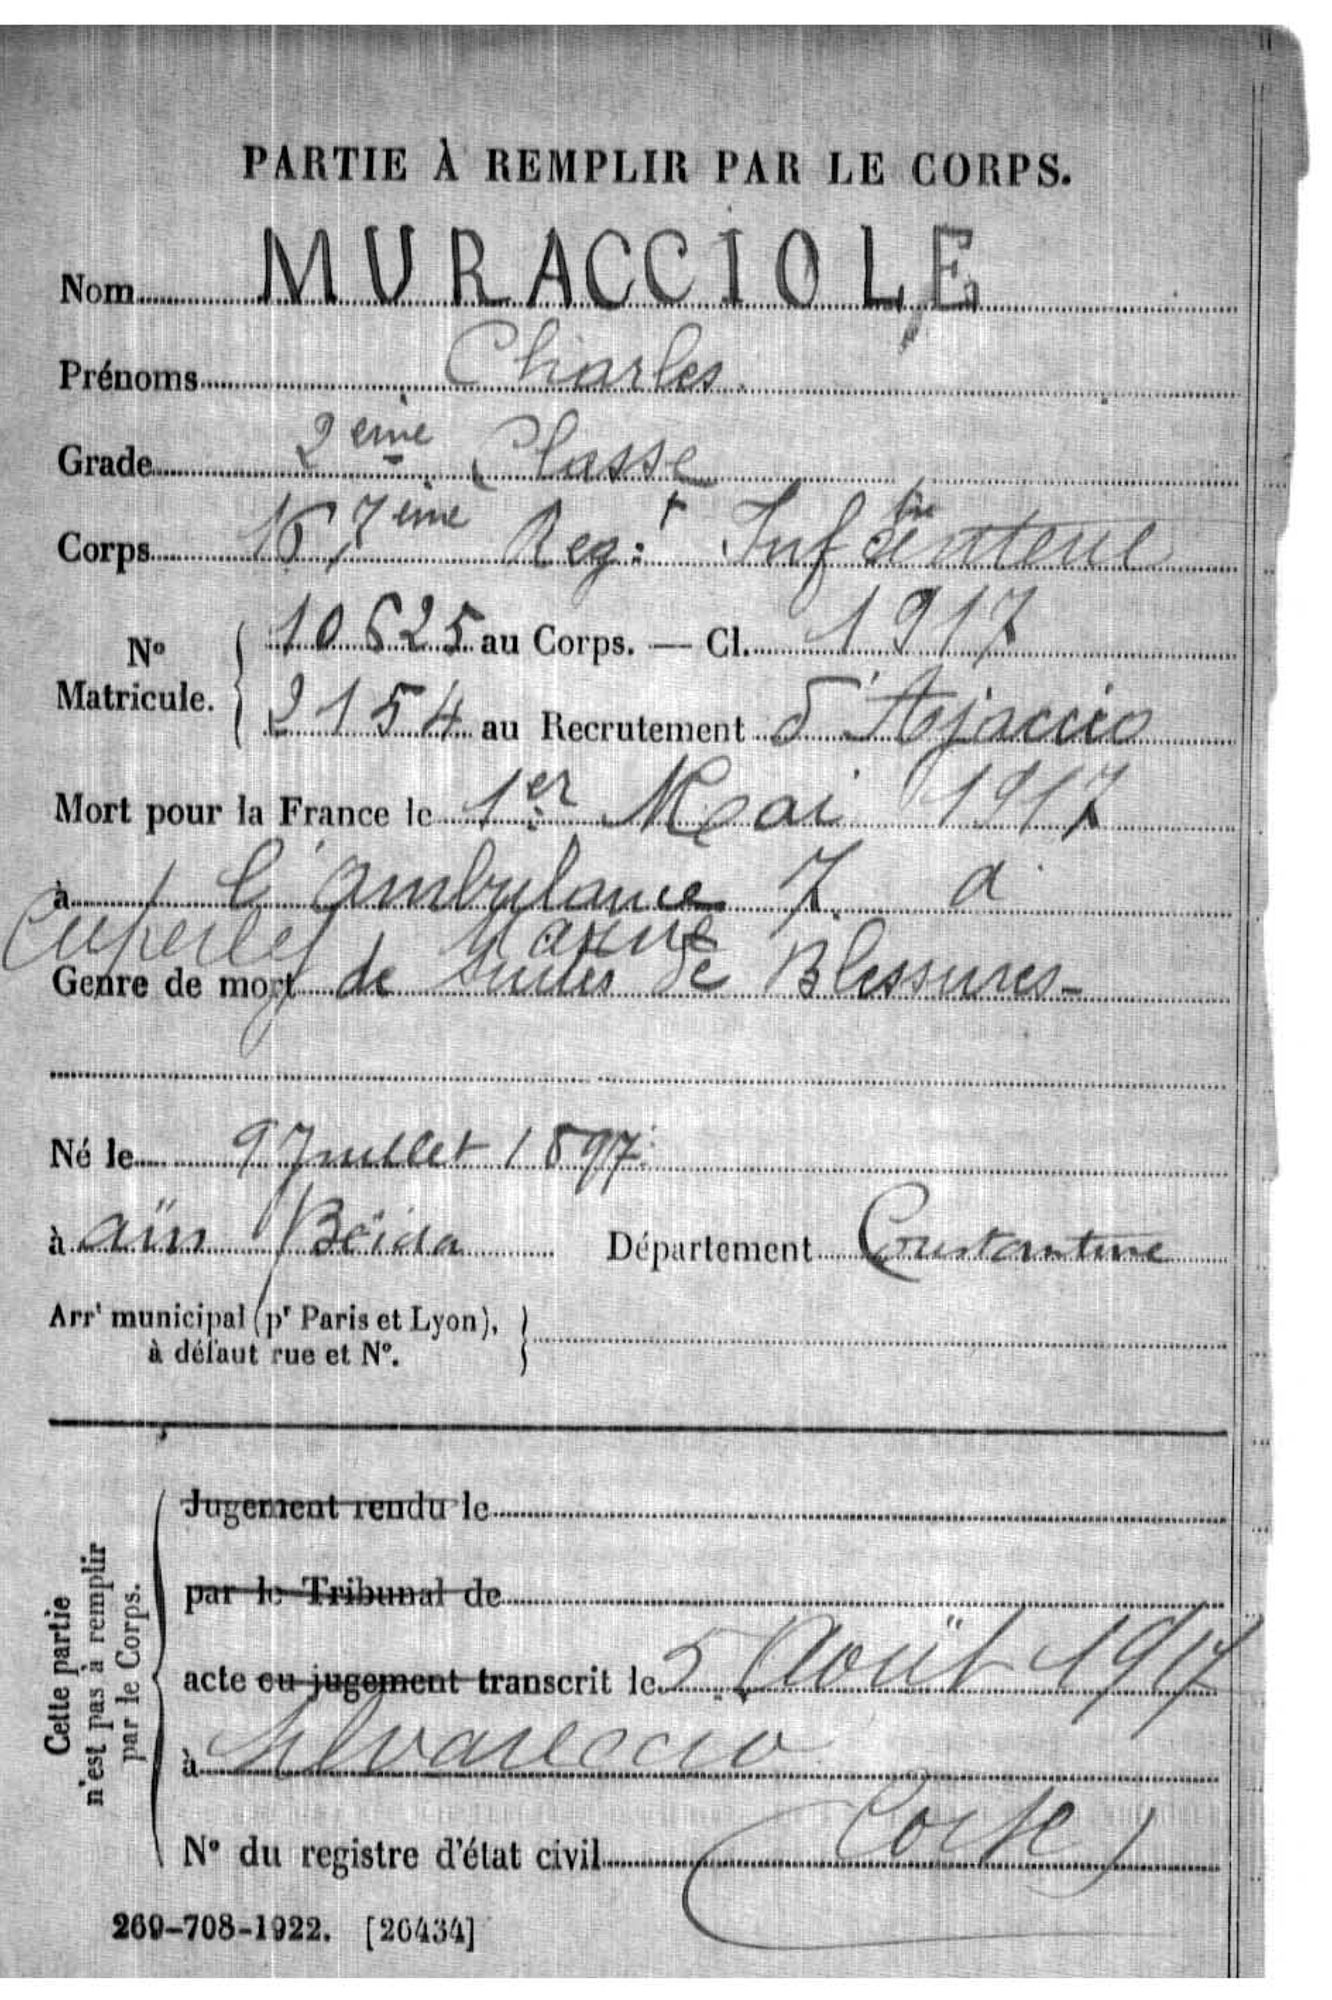 PARTIE À REMPLIR PAR LE CORPS.
Nom MURACCIOLE
Prénoms Charles.
Grade 2ème Classe
Corps ème Reg:t Infanterie
N° Matricule. 10625 au Corps. — Cl. 1917
2154 au Recrutement d'Ajaccio
Mort pour la France le 1er Mai 1917
à l'ambulance 7. à
Cuperley Marne
Genre de mort de suites de Blessures-
Né le 9 Juillet 1897
à aïn Beïda Département Constantine
Arrt municipal (pr Paris et Lyon),
à défaut rue et N°.
Cette partie
n'est pas à remplir
par le Corps.
Jugement rendu le
par le Tribunal de
acte ou jugement transcrit le 5 Août 1917
à Silvareccio
N° du registre d'état civil (Corse)
269-708-1922. [26434]